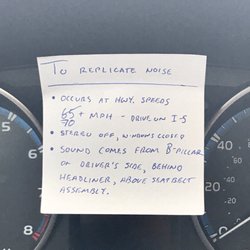 To REPLICATE NOISE
• OCCURS AT HWY. SPEEDS
65/70+ MPH - DRIVE ON I-5
• STEREO OFF, WINDOWS CLOSED
• SOUND COMES FROM B PILLAR
OF DRIVER'S SIDE, BEHIND
HEADLINER, ABOVE SEATBELT
ASSEMBLY.
8
7
6
5
40
20
0